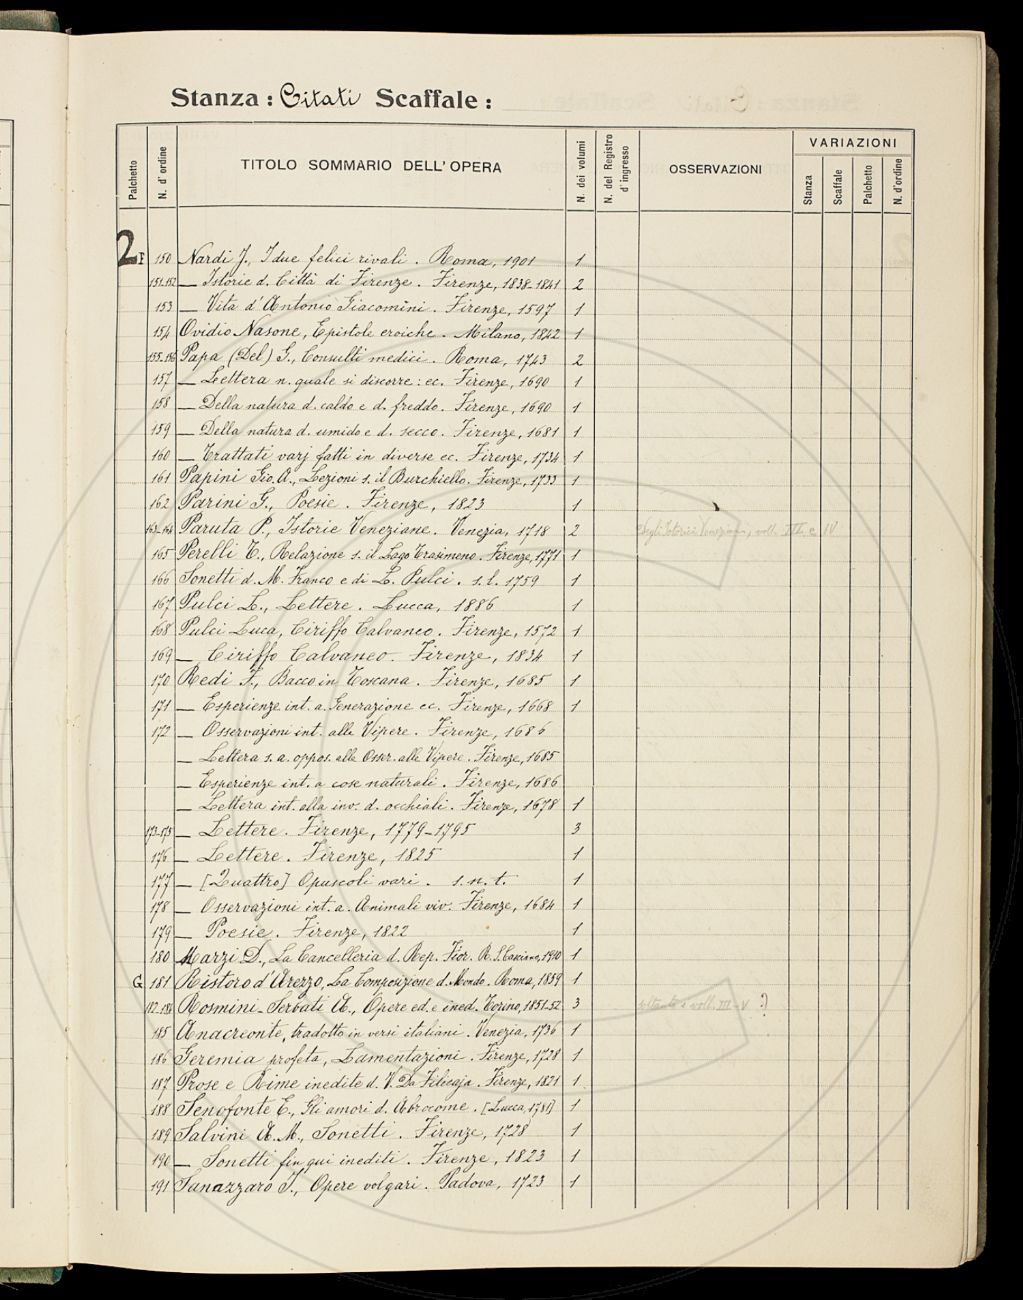 Stanza: Citati Scaffale:
Palchetto N. d'ordine TITOLO SOMMARIO DELL'OPERA N. dei volumi N. del Registro d'ingresso OSSERVAZIONI VARIAZIONI Stanza Scaffale Palchetto N. d'ordine
2 F 150 Nardi J., I due felici rivali. Roma, 1901 1
151.152 — Istorie d. Città di Firenze. Firenze, 1838-1841 2
153 — Vita d'Antonio Giacomini. Firenze, 1597 1
154 Ovidio Nasone, Epistole eroiche. Milano, 1842 1
155.156 Papa (Del) G., Consulti medici. Roma, 1743 2
157 — Lettera n. quale si discorre: ec. Firenze, 1690 1
158 — Della natura d. caldo e d. freddo. Firenze, 1690 1
159 — Della natura d. umido e d. secco. Firenze, 1681 1
160 — Trattati varj fatti in diverse ec. Firenze, 1734 1
161 Papini Gio. A., Lezioni s. il Burchiello. Firenze, 1733 1
162 Parini G., Poesie. Firenze, 1823 1
163-164 Paruta P., Istorie Veneziane. Venezia, 1718 2 Degli Istorici Veneziani, voll. III e IV
165 Perelli T., Relazione s. il Lago Trasimeno. Firenze, 1771 1
166 Sonetti d. M. Franco e di L. Pulci. s.l. 1759 1
167 Pulci L., Lettere. Lucca, 1886 1
168 Pulci Luca, Ciriffo Calvaneo. Firenze, 1572 1
169 — Ciriffo Calvaneo. Firenze, 1834 1
170 Redi F., Bacco in Toscana. Firenze, 1685 1
171 — Esperienze int. a. Generazione ec. Firenze, 1668 1
172 — Osservazioni int. alle Vipere. Firenze, 1686
— Lettera s. a. oppos. alle Osser. alle Vipere. Firenze, 1685
— Esperienze int. a cose naturali. Firenze, 1686
— Lettera int. alla inv. d. occhiali. Firenze, 1678 1
173-175 — Lettere. Firenze, 1779-1795 3
176 — Lettere. Firenze, 1825 1
177 — [Quattro] Opuscoli vari. s.n.t. 1
178 — Osservazioni int. a. Animali viv. Firenze, 1684 1
179 — Poesie. Firenze, 1822 1
180 Marzi D., La Cancelleria d. Rep. Fior. R. S. Casciano, 1910 1
G 181 Ristoro d'Arezzo, La Composizione d. Mondo. Roma, 1859 1
182-184 Rosmini-Serbati A., Opere ed. e ined. Torino, 1851-52 3 voll. III-V ?]
185 Anacreonte, tradotto in versi italiani. Venezia, 1736 1
186 Geremia profeta, Lamentazioni. Firenze, 1728 1
187 Prose e Rime inedite d. V. Da Filicaja. Firenze, 1821 1
188 Senofonte E., Gli amori d. Abrocome. [Lucca, 1781] 1
189 Salvini A. M., Sonetti. Firenze, 1728 1
190 — Sonetti fin qui inediti. Firenze, 1823 1
191 Sanazzaro J., Opere volgari. Padova, 1723 1